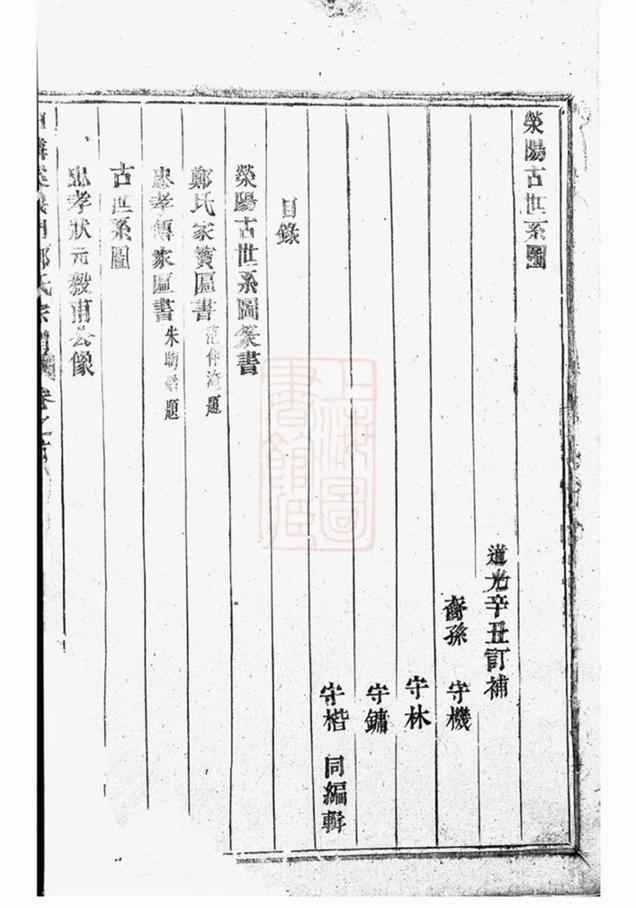 滎陽古世系圖
道光辛丑訂補
裔孫 守機
守林
守鏞
守楷 同編輯
目錄
滎陽古世系圖篆書
鄭氏家寶匾書 范仲淹題
忠孝傳家匾書 朱題
古世系圖
忠孝狀元毅甫公像
鄭氏宗譜 卷之首
上海圖書館藏